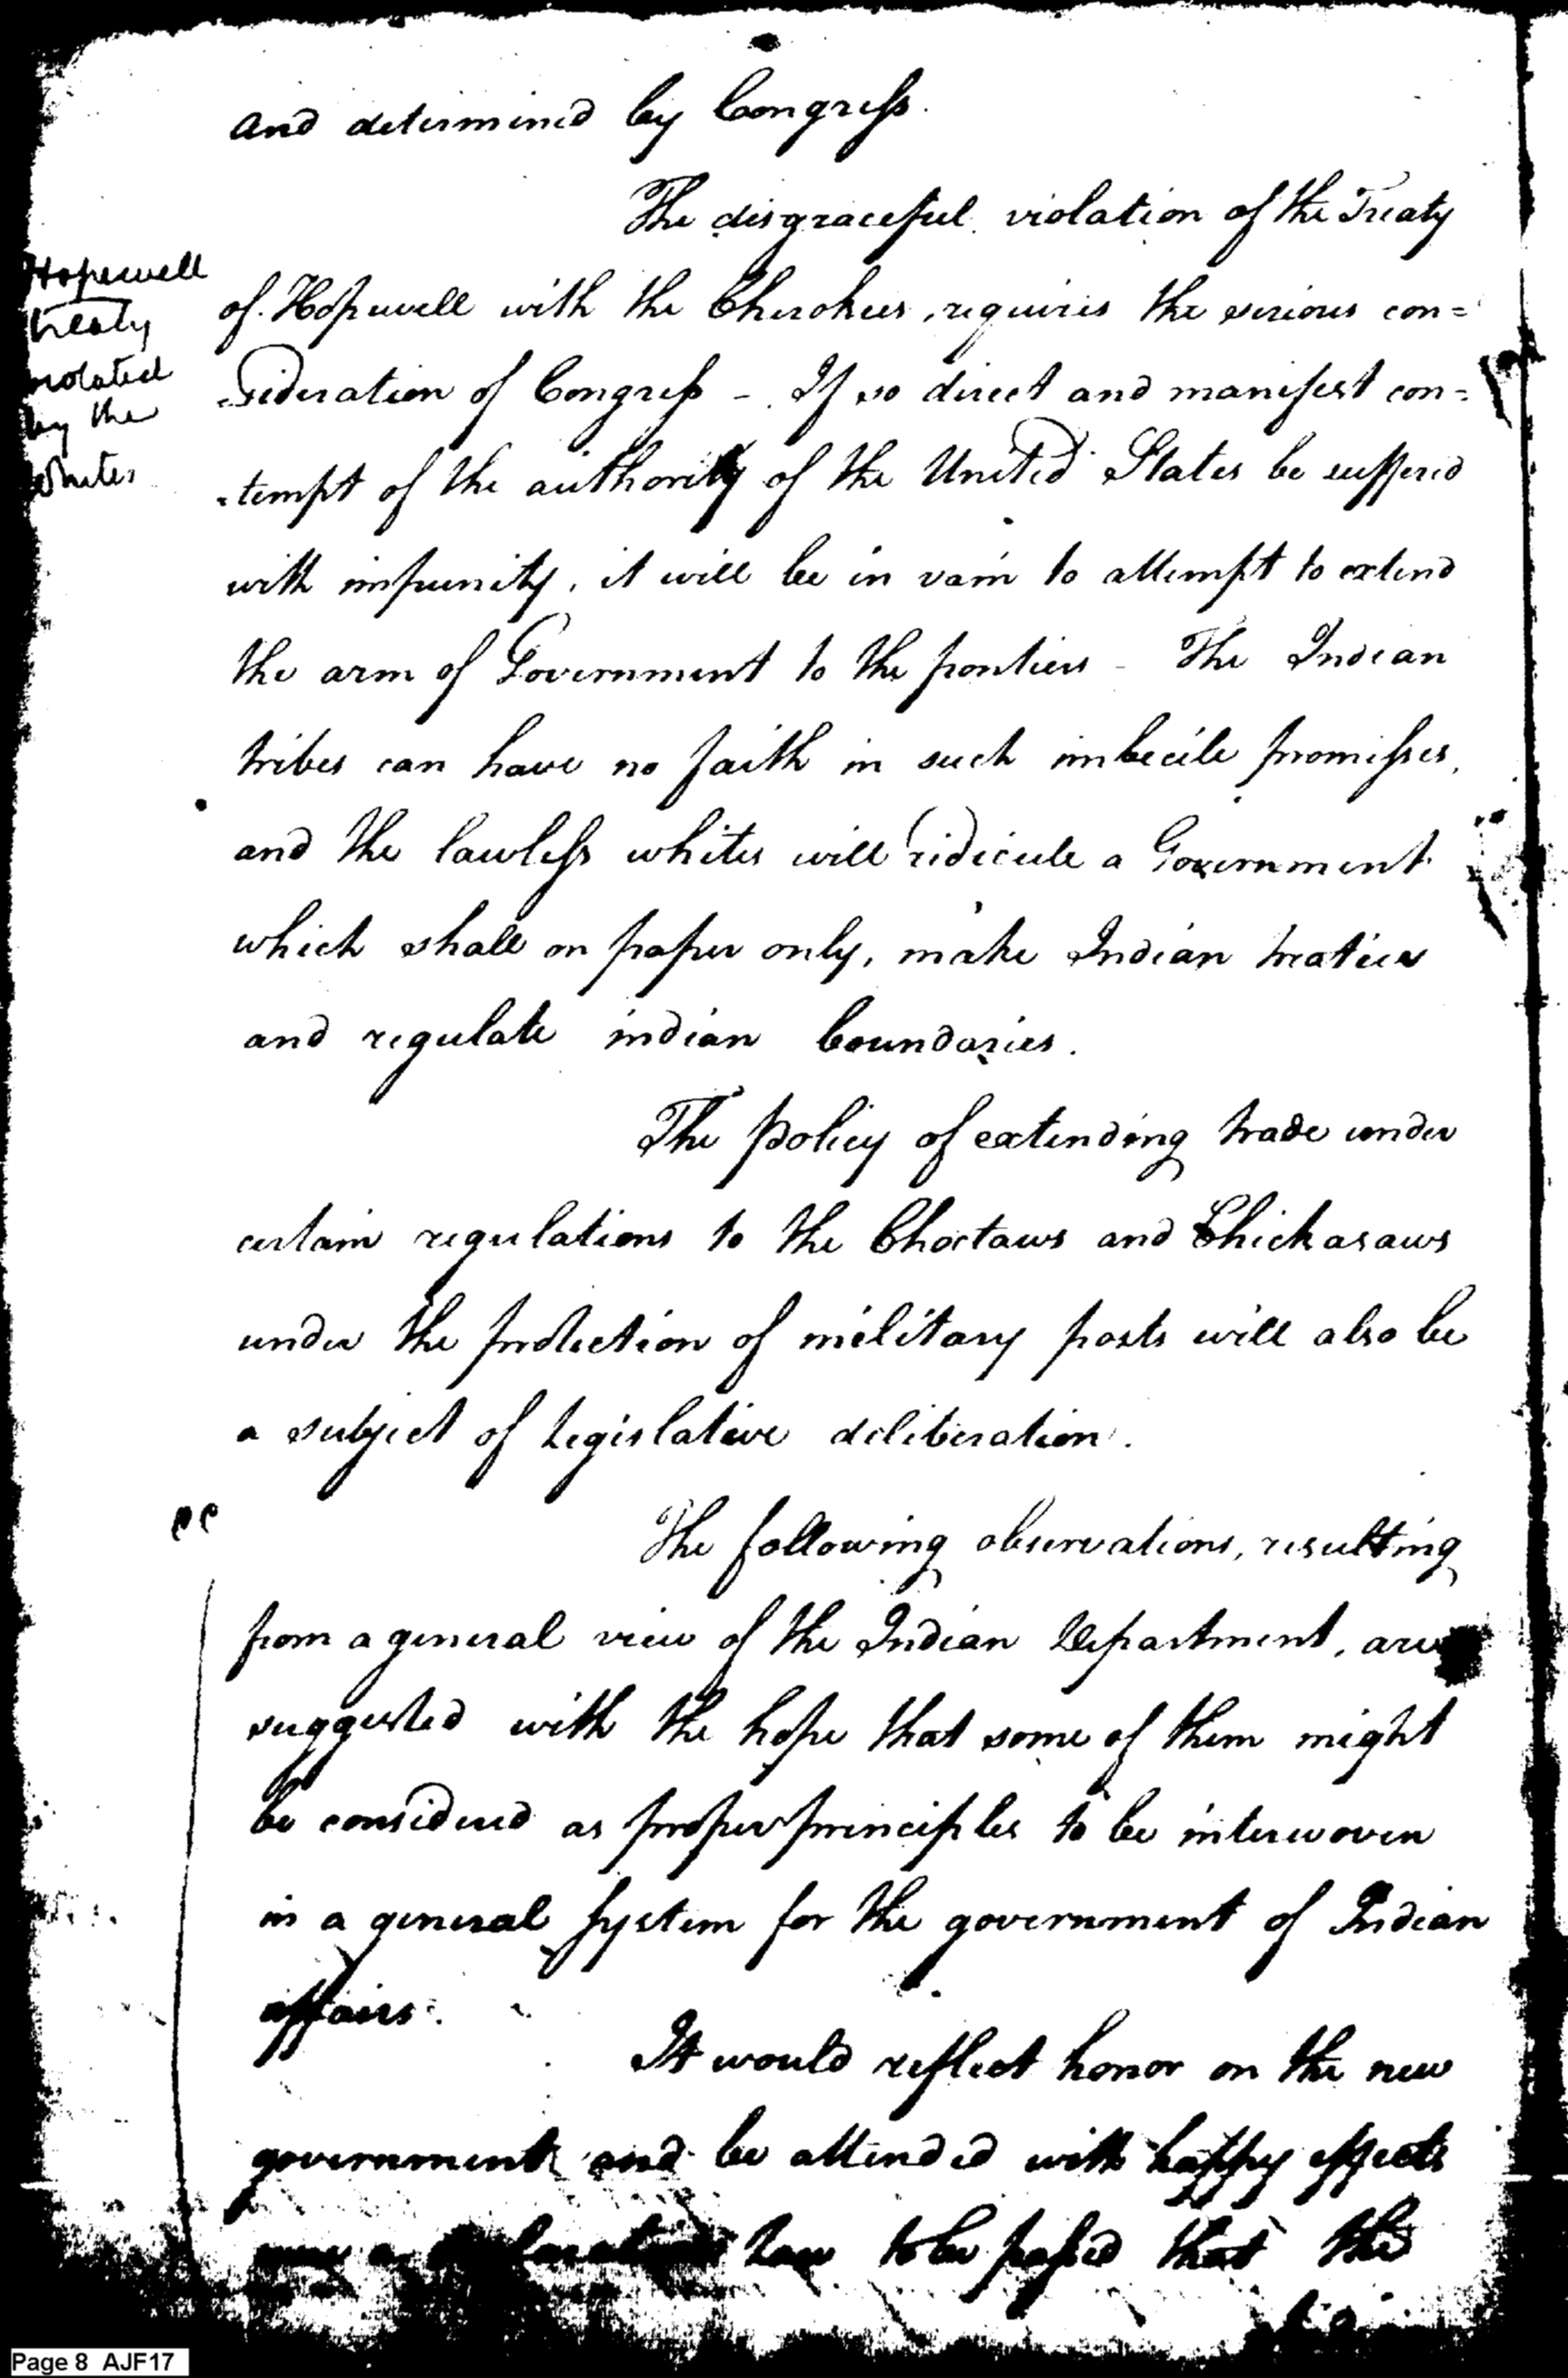 and determined by Congress.
The disgraceful violation of the Treaty
Hopewell
treaty
violated
by the
whites
of Hopewell with the Cherokees, requires the serious con=
=sideration of Congress – If so direct and manifest con=
=tempt of the authority of the United States be suffered
with impunity, it will be in vain to attempt to extend
the arm of Government to the frontiers – The Indian
tribes can have no faith in such imbecile promisses,
and the lawless whites will ridicule a Government
which shall on paper only, make Indian treaties
and regulate indian boundaries.
The policy of extending trade under
certain regulations to the Choctaws and Chickasaws
under the protection of military posts will also be
a subject of Legislative deliberation.
The following observations, resulting
from a general view of the Indian Department, are
suggested with the hope that some of them might
be considered as proper principles to be interwoven
in a general System for the government of Indian
affairs.
It would reflect honor on the new
government and be attended with happy effects
were a declarative Law to be passed that the
Page 8 AJF17